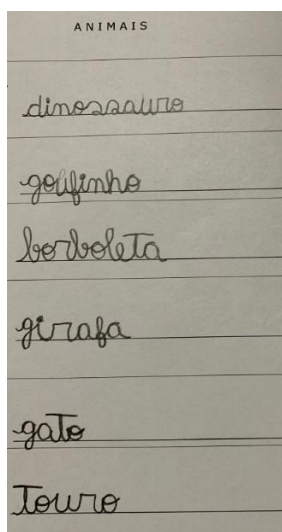 ANIMAIS
dinossauro
golfinho
borboleta
girafa
gato
touro